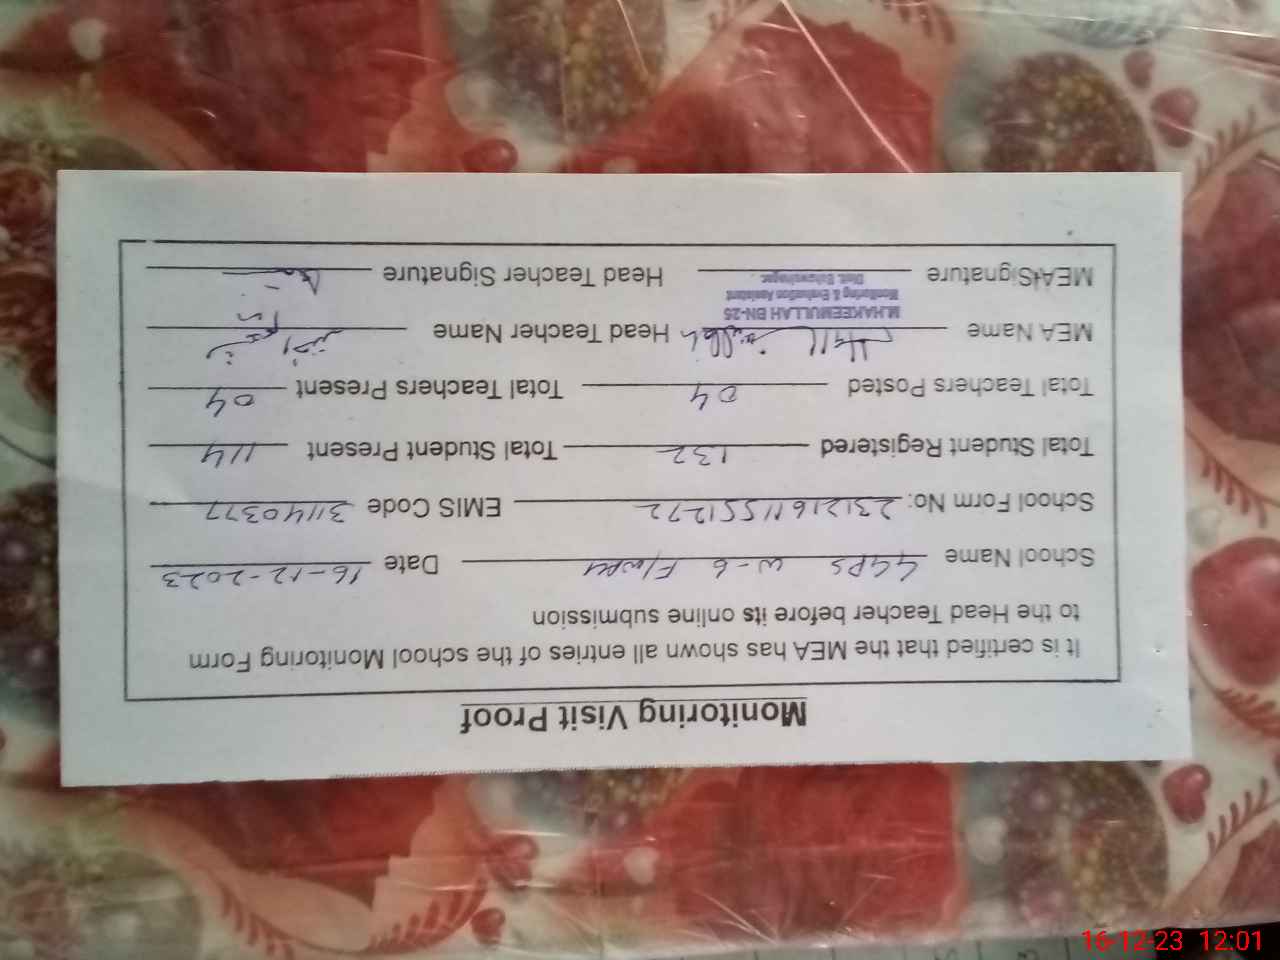 Monitoring Visit Proof
It is certified that the MEA has shown all entries of the school Monitoring Form
to the Head Teacher before its online submission
School Name GGPS W-6 F/Wah Date 16-12-2023
School Form No: 23121611551272 EMIS Code 31140377
Total Student Registered 132 Total Student Present 114
Total Teachers Posted 04 Total Teachers Present 04
MEA Name Head Teacher Name
M.HAKEEMULLAH BN-25
Monitoring & Evaluation Assistant
Distt. Bahawalnagar
MEA Signature Head Teacher Signature
16-12-23 12:01